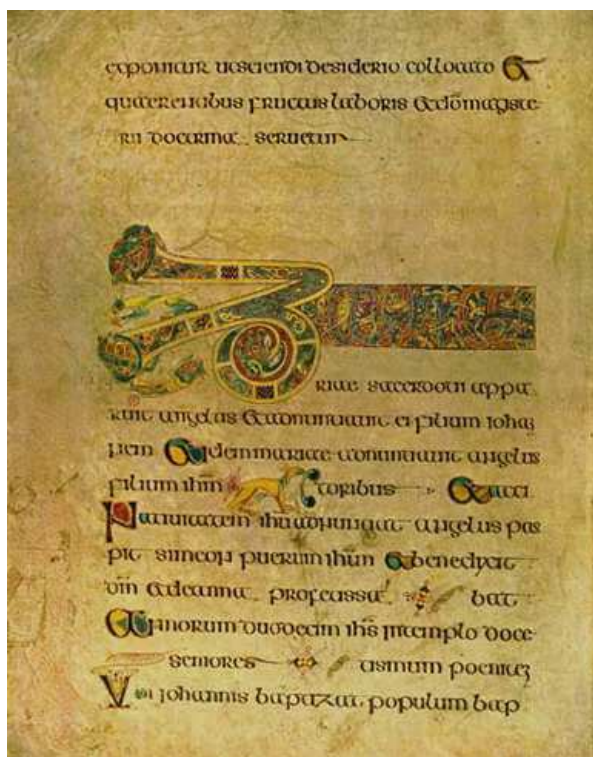 exponitur ut sciendi desiderio collocato &
quaerentibus fructus laboris & dō magiste
rii doctrina seruetur
Zacha
riae sacerdoti appa
ruit angelus & adnuntiauit ei filium iohan
nem & idem mariae adnuntiauit angelus
filium ihm toribus & acci
Natiuitatem ihu adnuntiat angelus pas
pit simeon puerum ihm & benedixit
dm & de anna profetissa bat
Annorum duodecim ihs in templo doce
seniores tismum poeniten
Ubi iohannis baptizat populum bap